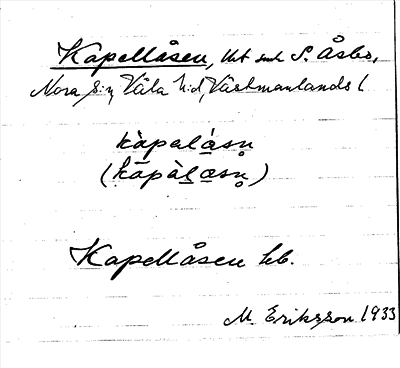 Kapellåsen, ut S. Åsbo,
Nora s:n, Våla h:d, Västmanlands l.
kapalåsn
(kāpàlåsn)
Kapellåsen hb.
M. Eriksson 1933